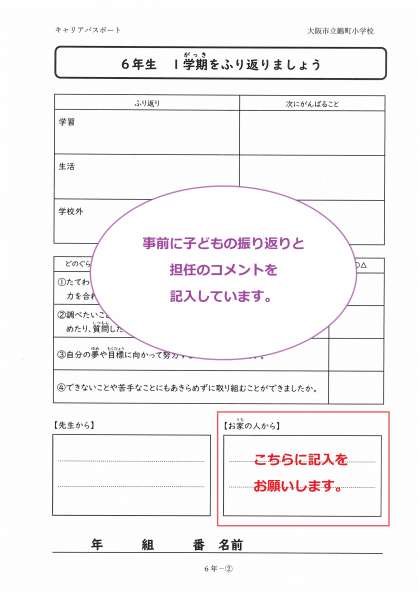 キャリアパスポート 大阪市立鶴町小学校
6年生 1学期をふり返りましょう
がっき
ふり返り 次にがんばること
学習
生活
学校外
事前に子どもの振り返りと
担任のコメントを
記入しています。
どのぐら
①たてわ
力を合わ
②調べたいこ
めたり、質問した
しつもん
③自分の夢や目標に向かって努力
ゆめ もくひょう
④できないことや苦手なことにもあきらめずに取り組むことができましたか。
【先生から】 【お家の人から】
うち
こちらに記入を
お願いします。
年 組 番 名前
6年-②